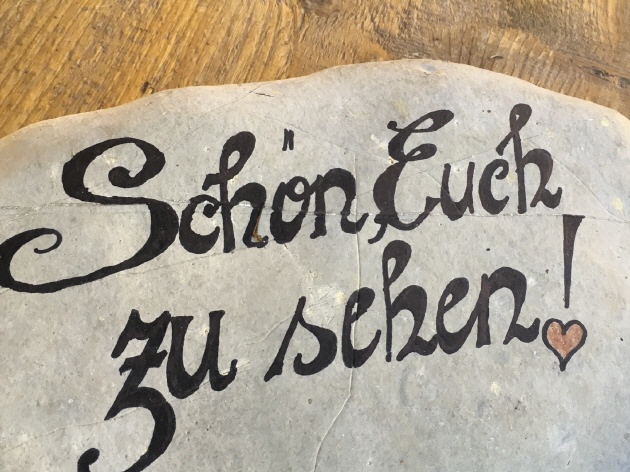 Schön, Euch
zu sehen!